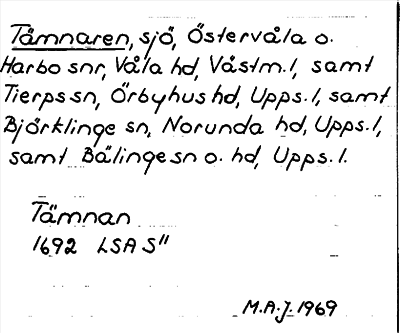 Tämnaren, sjö, Östervåla o.
Harbo snr, Våla hd, Västm. l, samt
Tierps sn, Örbyhus hd, Upps. l, samt
Björklinge sn, Norunda hd, Upps. l,
samt Bälinge sn o. hd, Upps. l.
Tämnan
1692 LSA S"
M.A.J. 1969